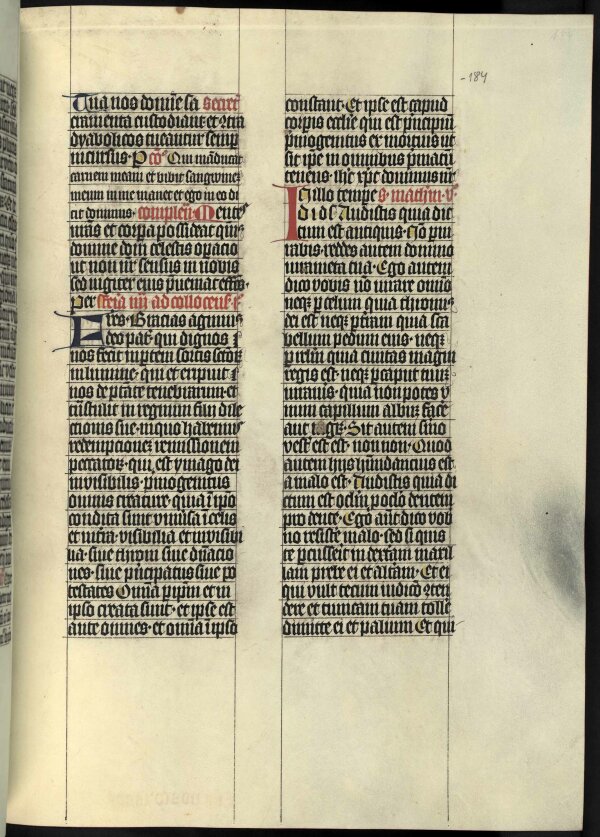 -184
Tua nos domine sa secret
cramenta custodiant et ɔtra
dyabolicos tueantur semper
incursus. Qui manducat
carnem meam et bibit sanguinem
meum in me manet et ego in eo di
cit dominus. complend Mentes
nras et corpa possideat qus
domine doni celestis opacio
ut non nr sensus in nobis
sed iugiter eius pueniat effcs.
Per feria iiij ad colloceñ
Fres. Gracias agimus
deo patri qui dignos
nos fecit in ptem sortis sctor
in lumine. qui et eripuit
nos de ptate tenebrarum. et
tnstulit in regnum filii dile
ctionis sue. in quo habemus
redempcionez remissionem
peccatoꝝ. qui est ymago dei
invisibilis. pmogenitus
omnis creature. quia in ipo
condita sunt univsa in celis
et in terra. visibilia et invisibi
lia. sive throni sive dnacio
nes. sive pncipatus sive po
testates. Omnia p ipm et in
ipso creata sunt. et ipse est
ante omnes. et omnia in ipso
constant. Et ipse est capud
corpis ecclie qui est pncipium
pmogenitus ex mortuis ut
sit ipe in omnibus pmatum
tenens. ihc xpc dominus nr
In illo tempe s. mathm. v.
d i d s Audistis quia dic
tum est antiquis. No piu
rabis. reddes autem domino
iurameta tua. Ego autem
dico vobis no iurare omio
neqꝫ p celum quia thronus
dei est neqꝫ p tram quia sca
bellum pedum eius. neqꝫ
p irlm quia civitas magni
regis est. neqꝫ p caput tuum
iuravis. quia non potes v
num capillum album face
aut nigꝝ. Sit autem smo
vester est est. non non. Quod
autem hijs habundancius est
a malo est. Audistis quia di
ctum est oclm p oclo dentem
pro dente. Ego aut dico vob
no resiste malo. sed si quis
te pcusseit in dextam maxil
lam prebe ei et altam. Et ei
qui vult tecum iudicio ɔten
dere et tunicam tuam tolle
dimitte ei et palium. Et qui